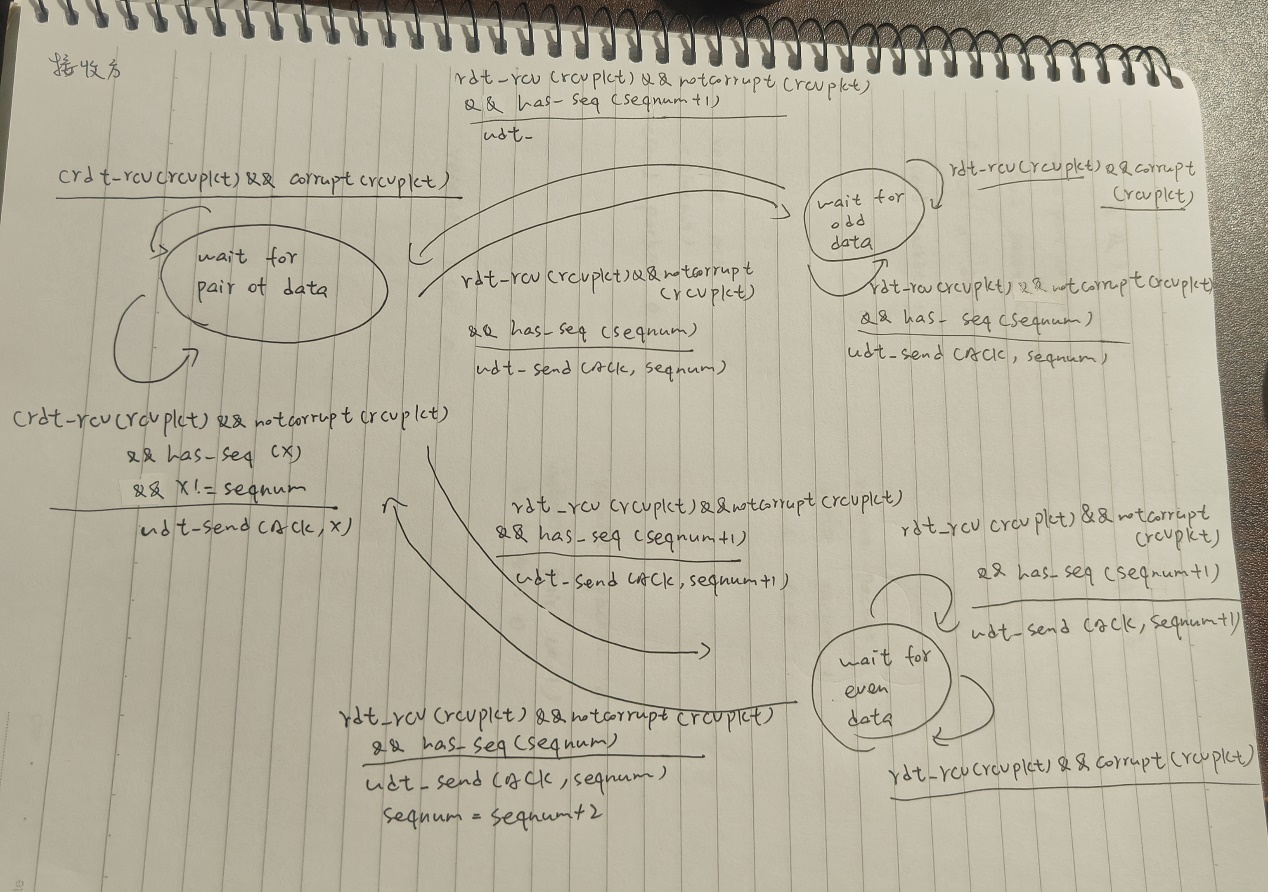 接收方
rdt_rcv (rcvpkt) && notcorrupt (rcvpkt)
&& has_seq (seqnum+1)
udt_
(rdt_rcv(rcvpkt) && corrupt (rcvpkt)
wait for
pair of data
wait for
odd
data
rdt_rcv(rcvpkt) && corrupt
(rcvpkt)
rdt_rcv (rcvpkt) && notcorrupt
(rcvpkt)
&& has_seq (seqnum)
udt_send (ACK, seqnum)
rdt_rcv(rcvpkt) && notcorrupt (rcvpkt)
&& has_seq (seqnum)
udt_send (ACK, seqnum)
(rdt_rcv(rcvpkt) && notcorrupt (rcvpkt)
&& has_seq (x)
&& x != seqnum
udt_send (ACK, x)
rdt_rcv (rcvpkt) && notcorrupt (rcvpkt)
&& has_seq (seqnum+1)
udt_send (ACK, seqnum+1)
rdt_rcv (rcvpkt) && notcorrupt
(rcvpkt)
&& has_seq (seqnum+1)
udt_send (ACK, seqnum+1)
wait for
even
data
rdt_rcv (rcvpkt) && notcorrupt (rcvpkt)
&& has_seq (seqnum)
udt_send (ACK, seqnum)
seqnum = seqnum+2
rdt_rcv(rcvpkt) && corrupt (rcvpkt)